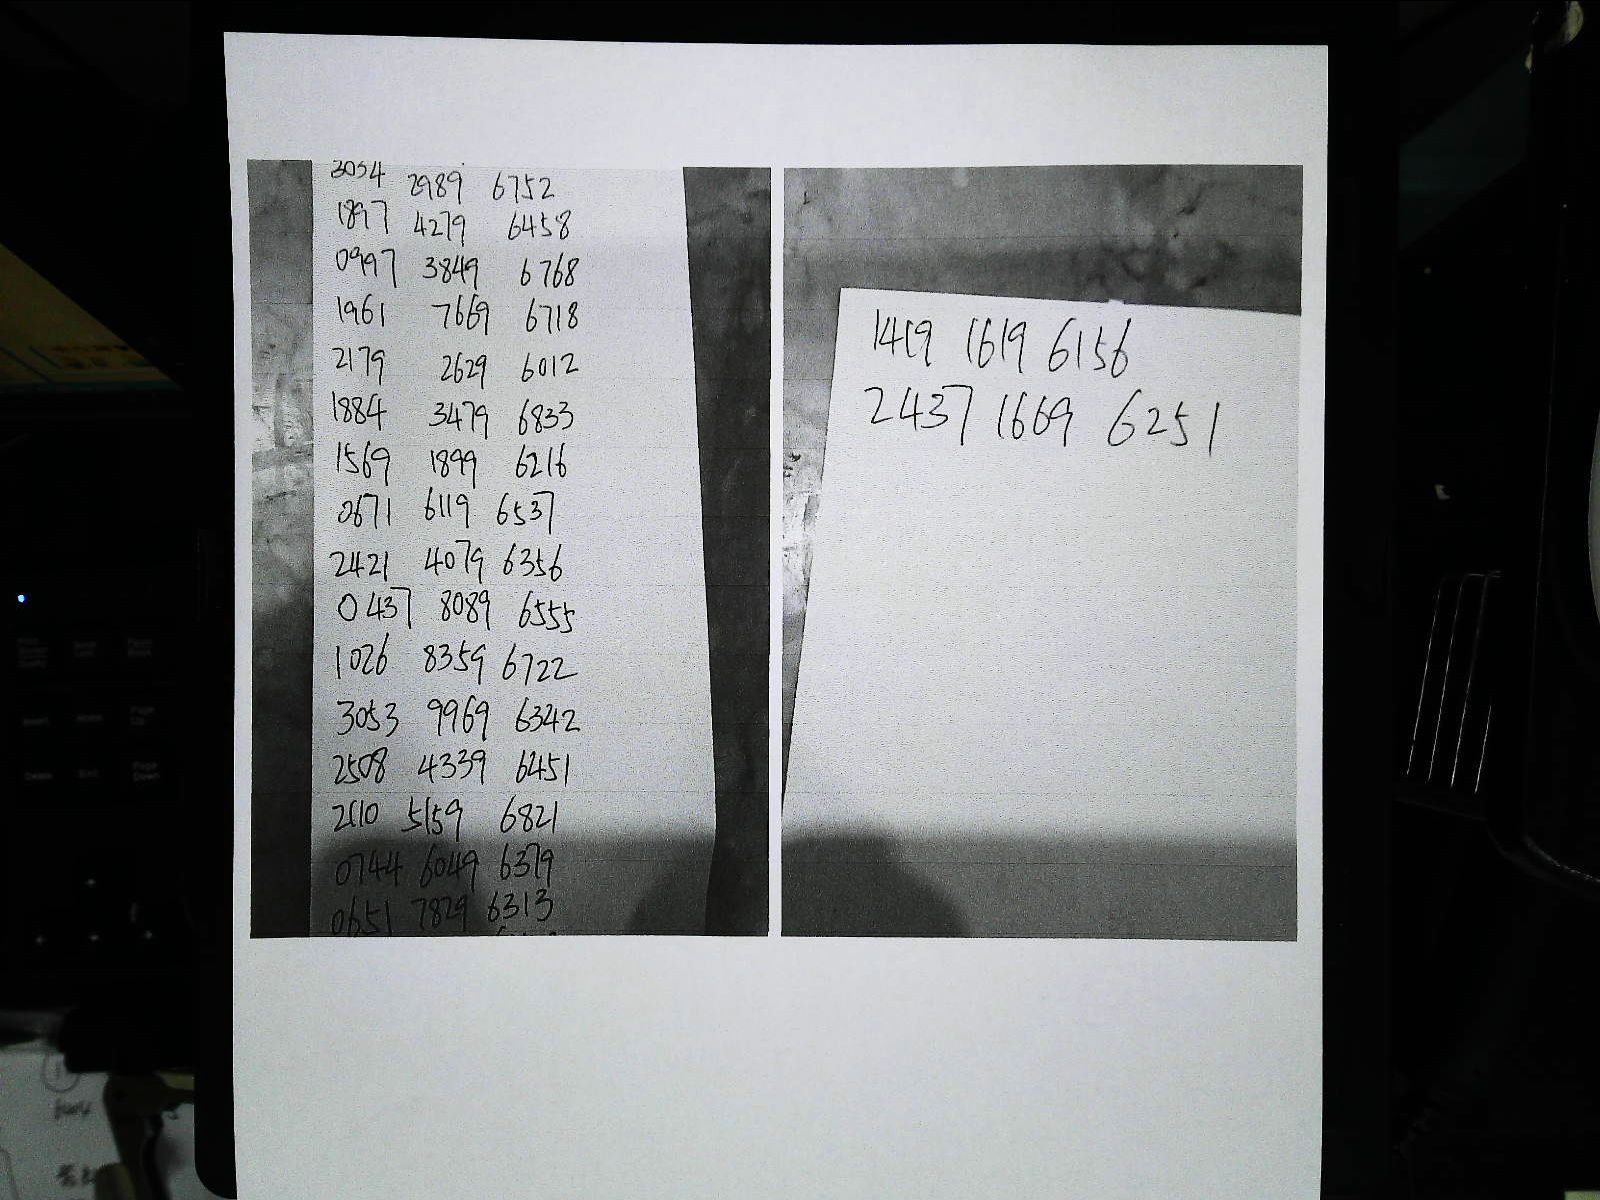 3054 2989 6752
1897 4279 6458
0997 3849 6768
1961 7669 6718
2179 2629 6012
1884 3479 6833
1569 1899 6216
0671 6119 6537
2421 4079 6356
0437 8089 6555
1026 8359 6722
3053 9969 6342
2508 4339 6451
2110 5159 6821
0744 6049 6379
0651 7829 6313
1419 1619 6156
2437 1669 6251